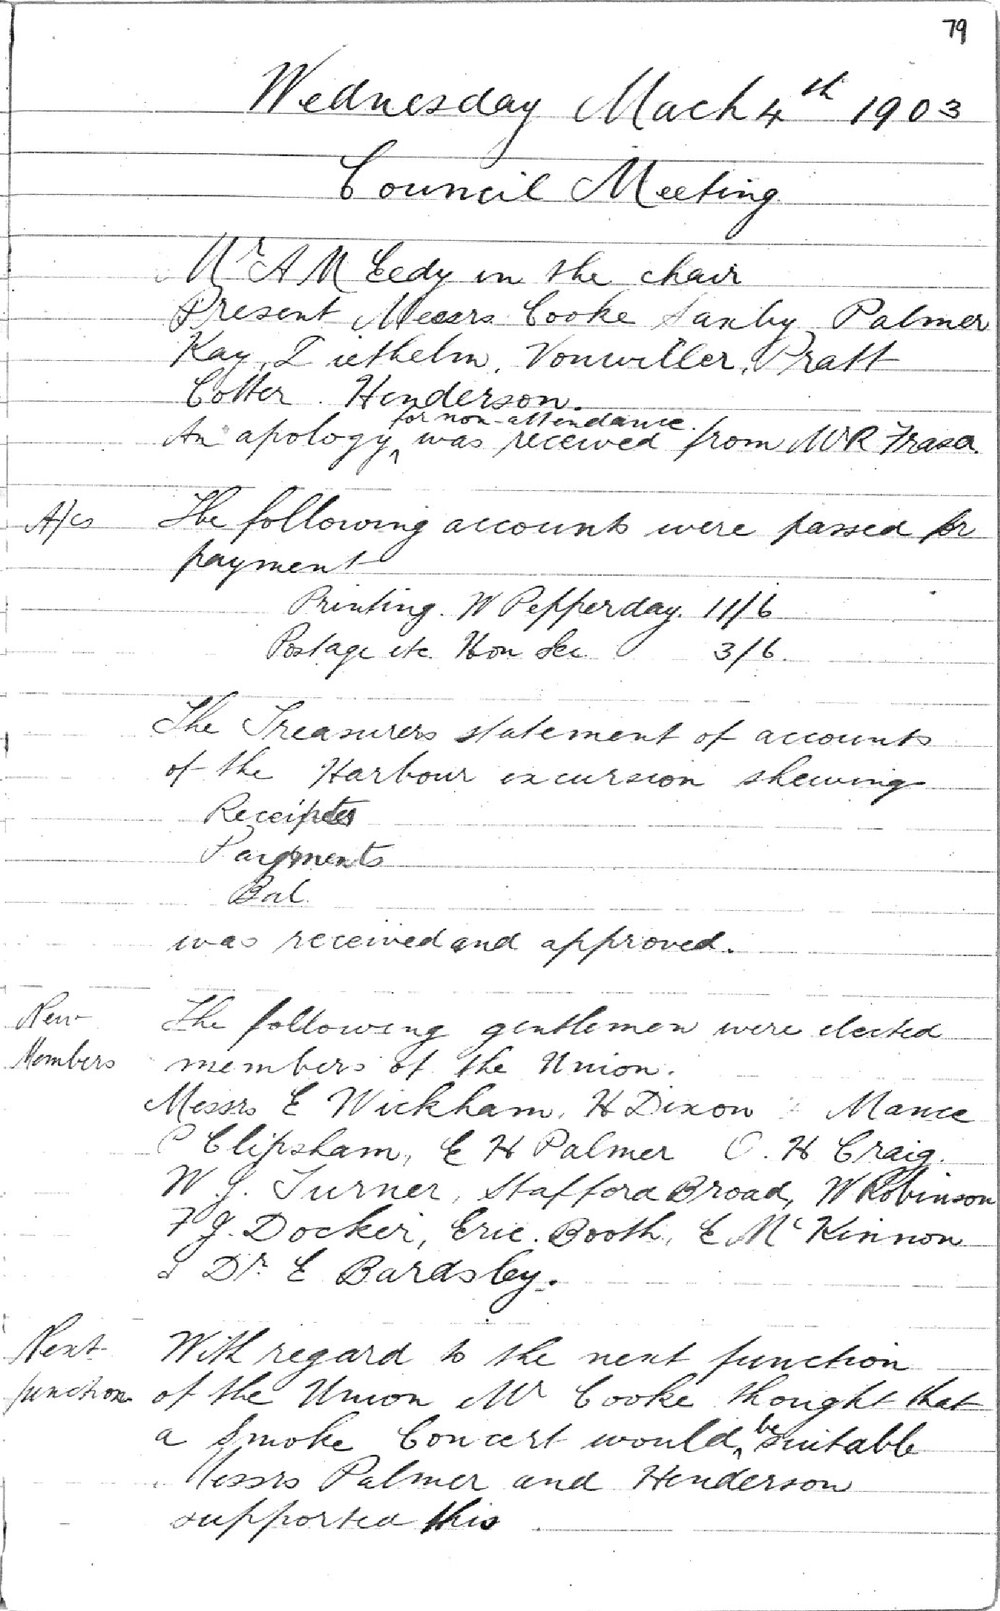 79
Wednesday Mach 4th 1903
Council Meeting
Mr A M Eedy in the chair
Present Messrs Cooke Saxby, Palmer
Kay, Diethelm, Vonwiller, Pratt
Cotter. Henderson.
for non-attendance.
An apology ^ was received from Mr R Fraser.
A/cs The following accounts were passed for
payment
Printing. W Pepperday. 11/6
Postage etc. Hon Sec 3/6.
The Treasurers statement of accounts
of the Harbour excursion shewing
Receipts
Payments
Bal.
was received and approved.
New The following gentlemen were elected
Members members of the Union.
Messrs E Wickham, H Dixon Mance
C Clipsham, E H Palmer C. H Craig.
W J. Turner, Stafford Broad, W Robinson
F J. Docker, Eric. Booth, E McKinnon
& Dr. E Bardsley.
Next With regard to the next function
function of the Union Mr Cooke thought that
a Smoke Concert would ^be suitable
Messrs Palmer and Henderson
supported this